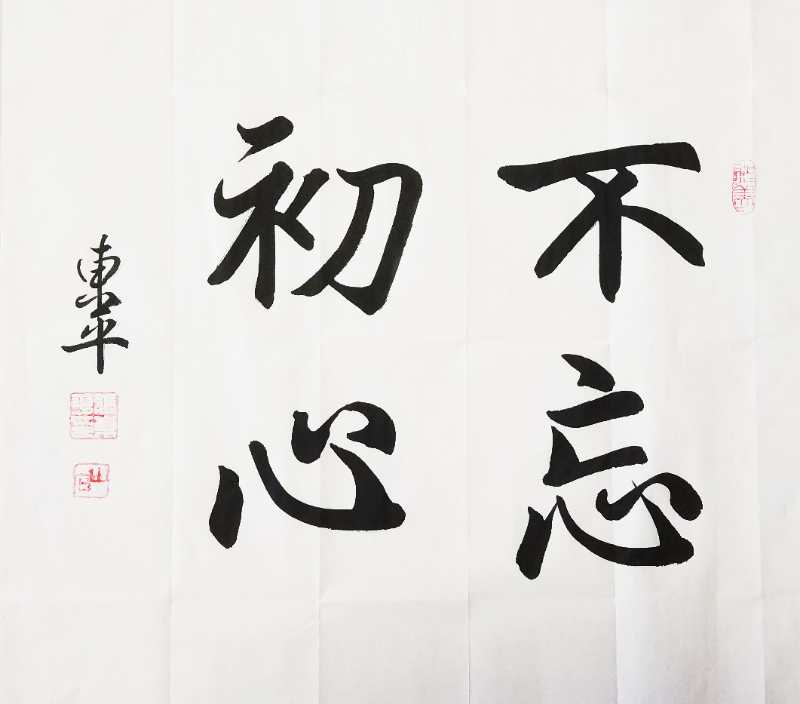 不忘
初心
東平